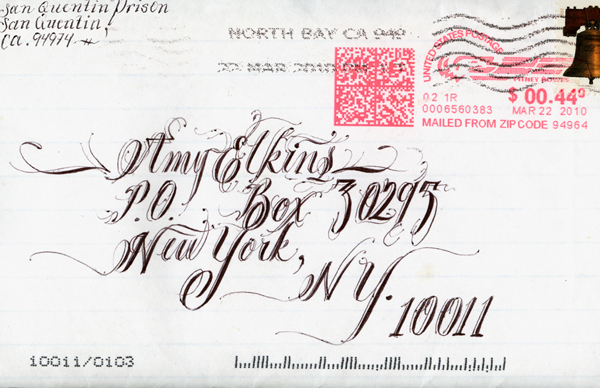 San Quentin Prison
San Quentin,
CA. 94974.#
NORTH BAY CA 949
22 MAR 2010 PM
UNITED STATES POSTAGE
PITNEY BOWES
02 1R
$ 00.44⁰
0006560383
MAR 22 2010
MAILED FROM ZIP CODE 94964
Amy Elkins
P.O. Box 30295
New York,
NY. 10011
10011/0103